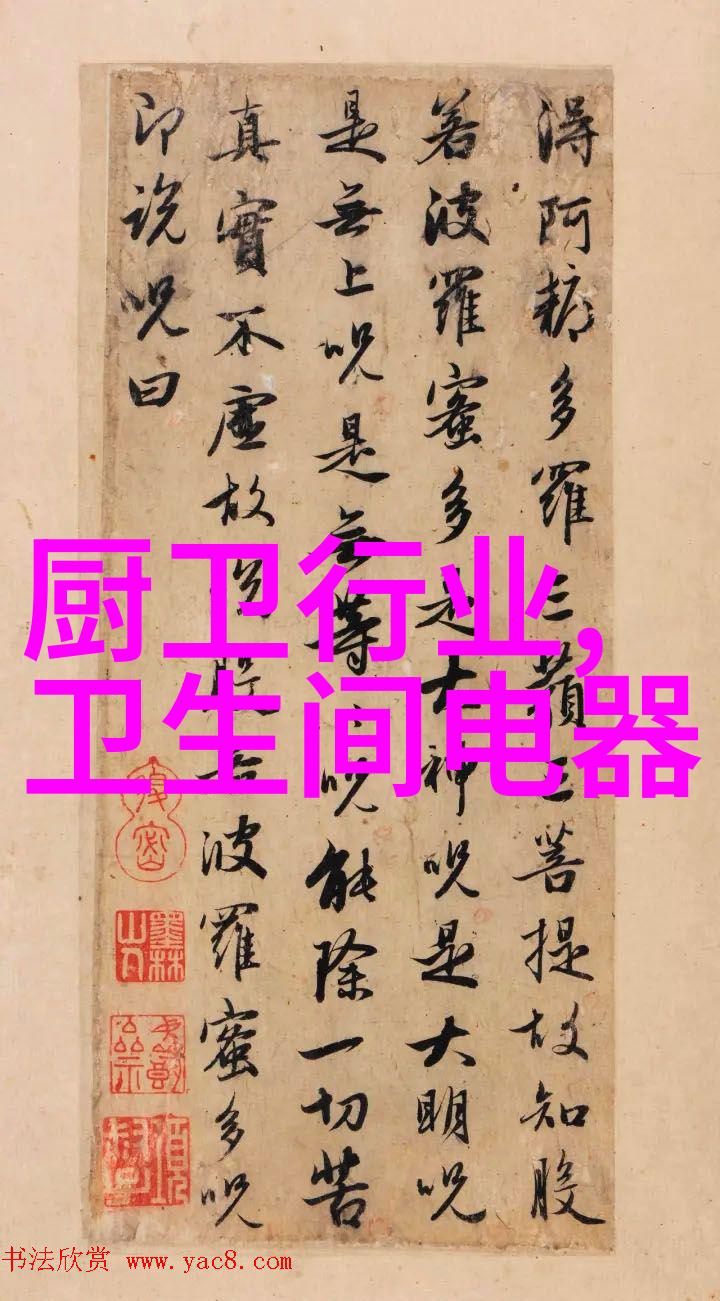 得阿耨多羅三藐三菩提故知般
若波羅蜜多是大神呪是大明呪
是無上呪是無等々呪能除一切苦
真實不虛故說般若波羅蜜多呪
即說呪曰
厨卫行业,
卫生间电器
墨林山人
书法欣赏 www.yac8.com